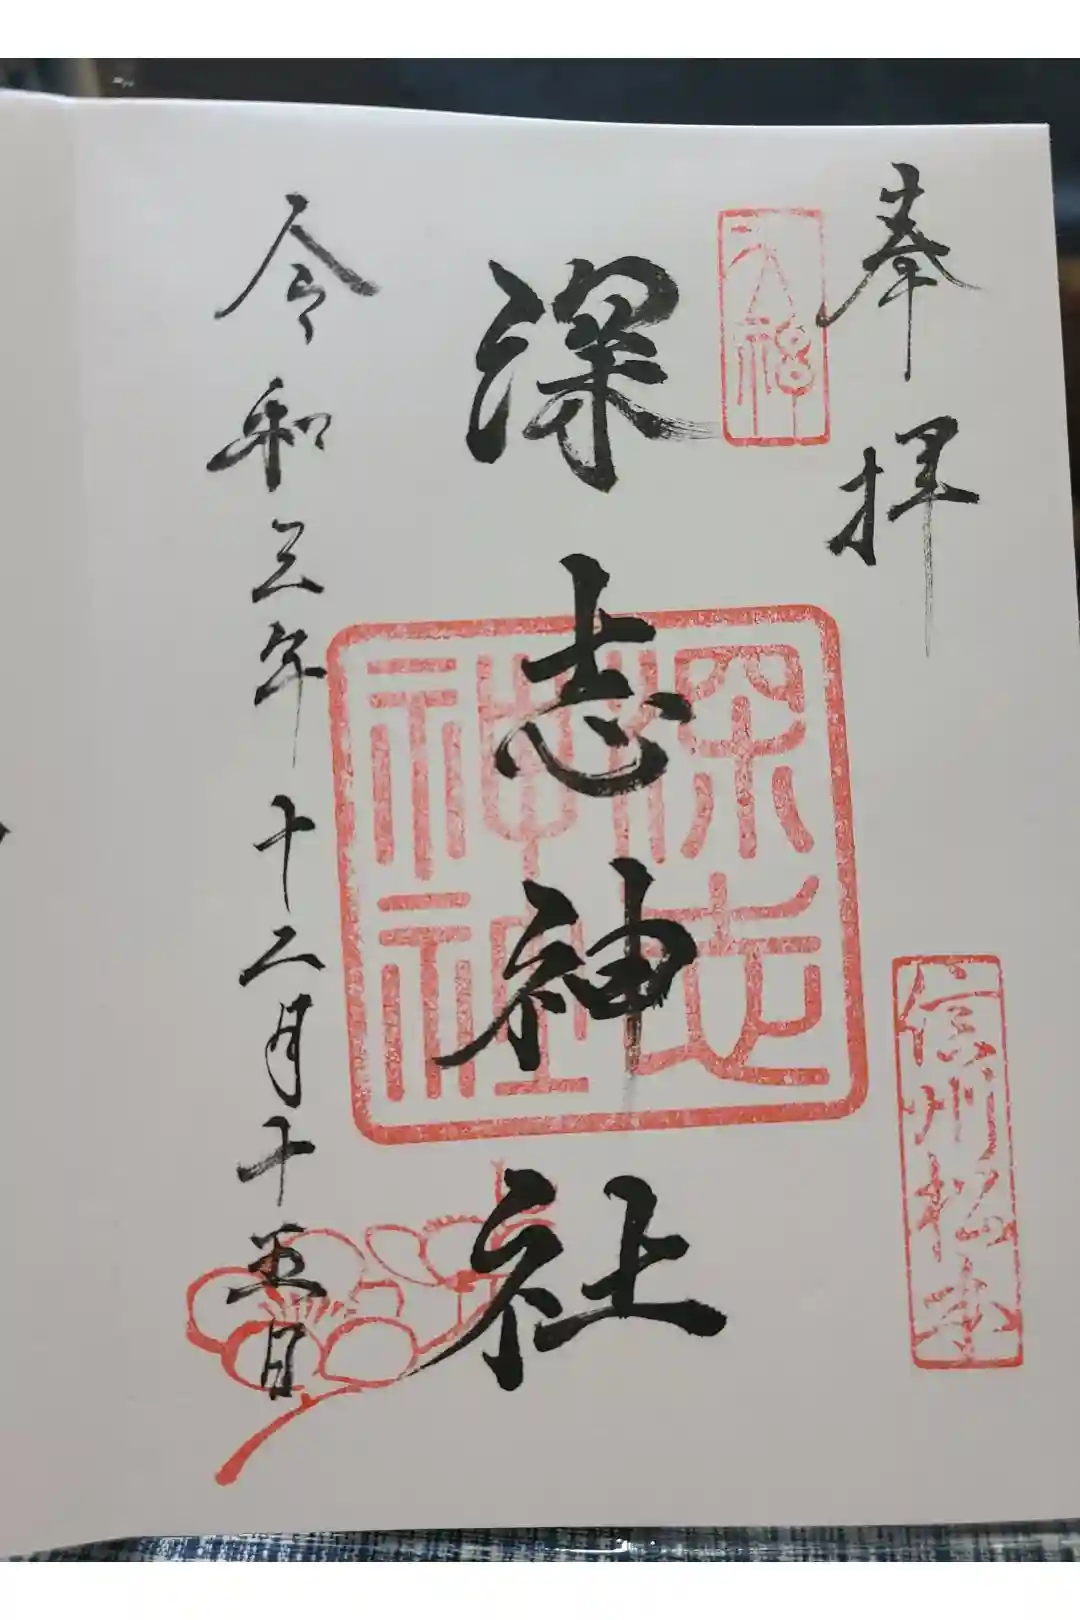 奉拝
信州松本
深志神社
深志
神社
令和三年十二月十五日